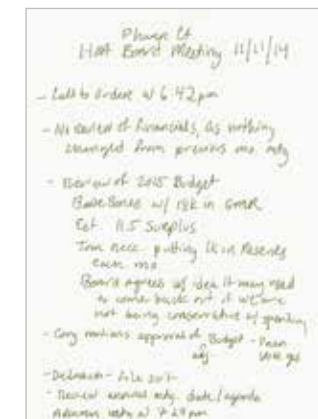 HOA Board Meeting 11/11/14
- Call to Order at 6:42pm
- No review of financials, as nothing
changed from previous mo. mtg
- Review of 2015 Budget
Bare Bones w/ 18k in GMR
Est 11.5 Surplus
Tom recc. putting 1k in Reserves
each mo
Board agrees w/ idea it may need
to come back out if we are
not being conservative w/ spending
motions approval of Budget - Dean
- Review annual mtg. date/agenda
Adjourn mtg at 7:29pm